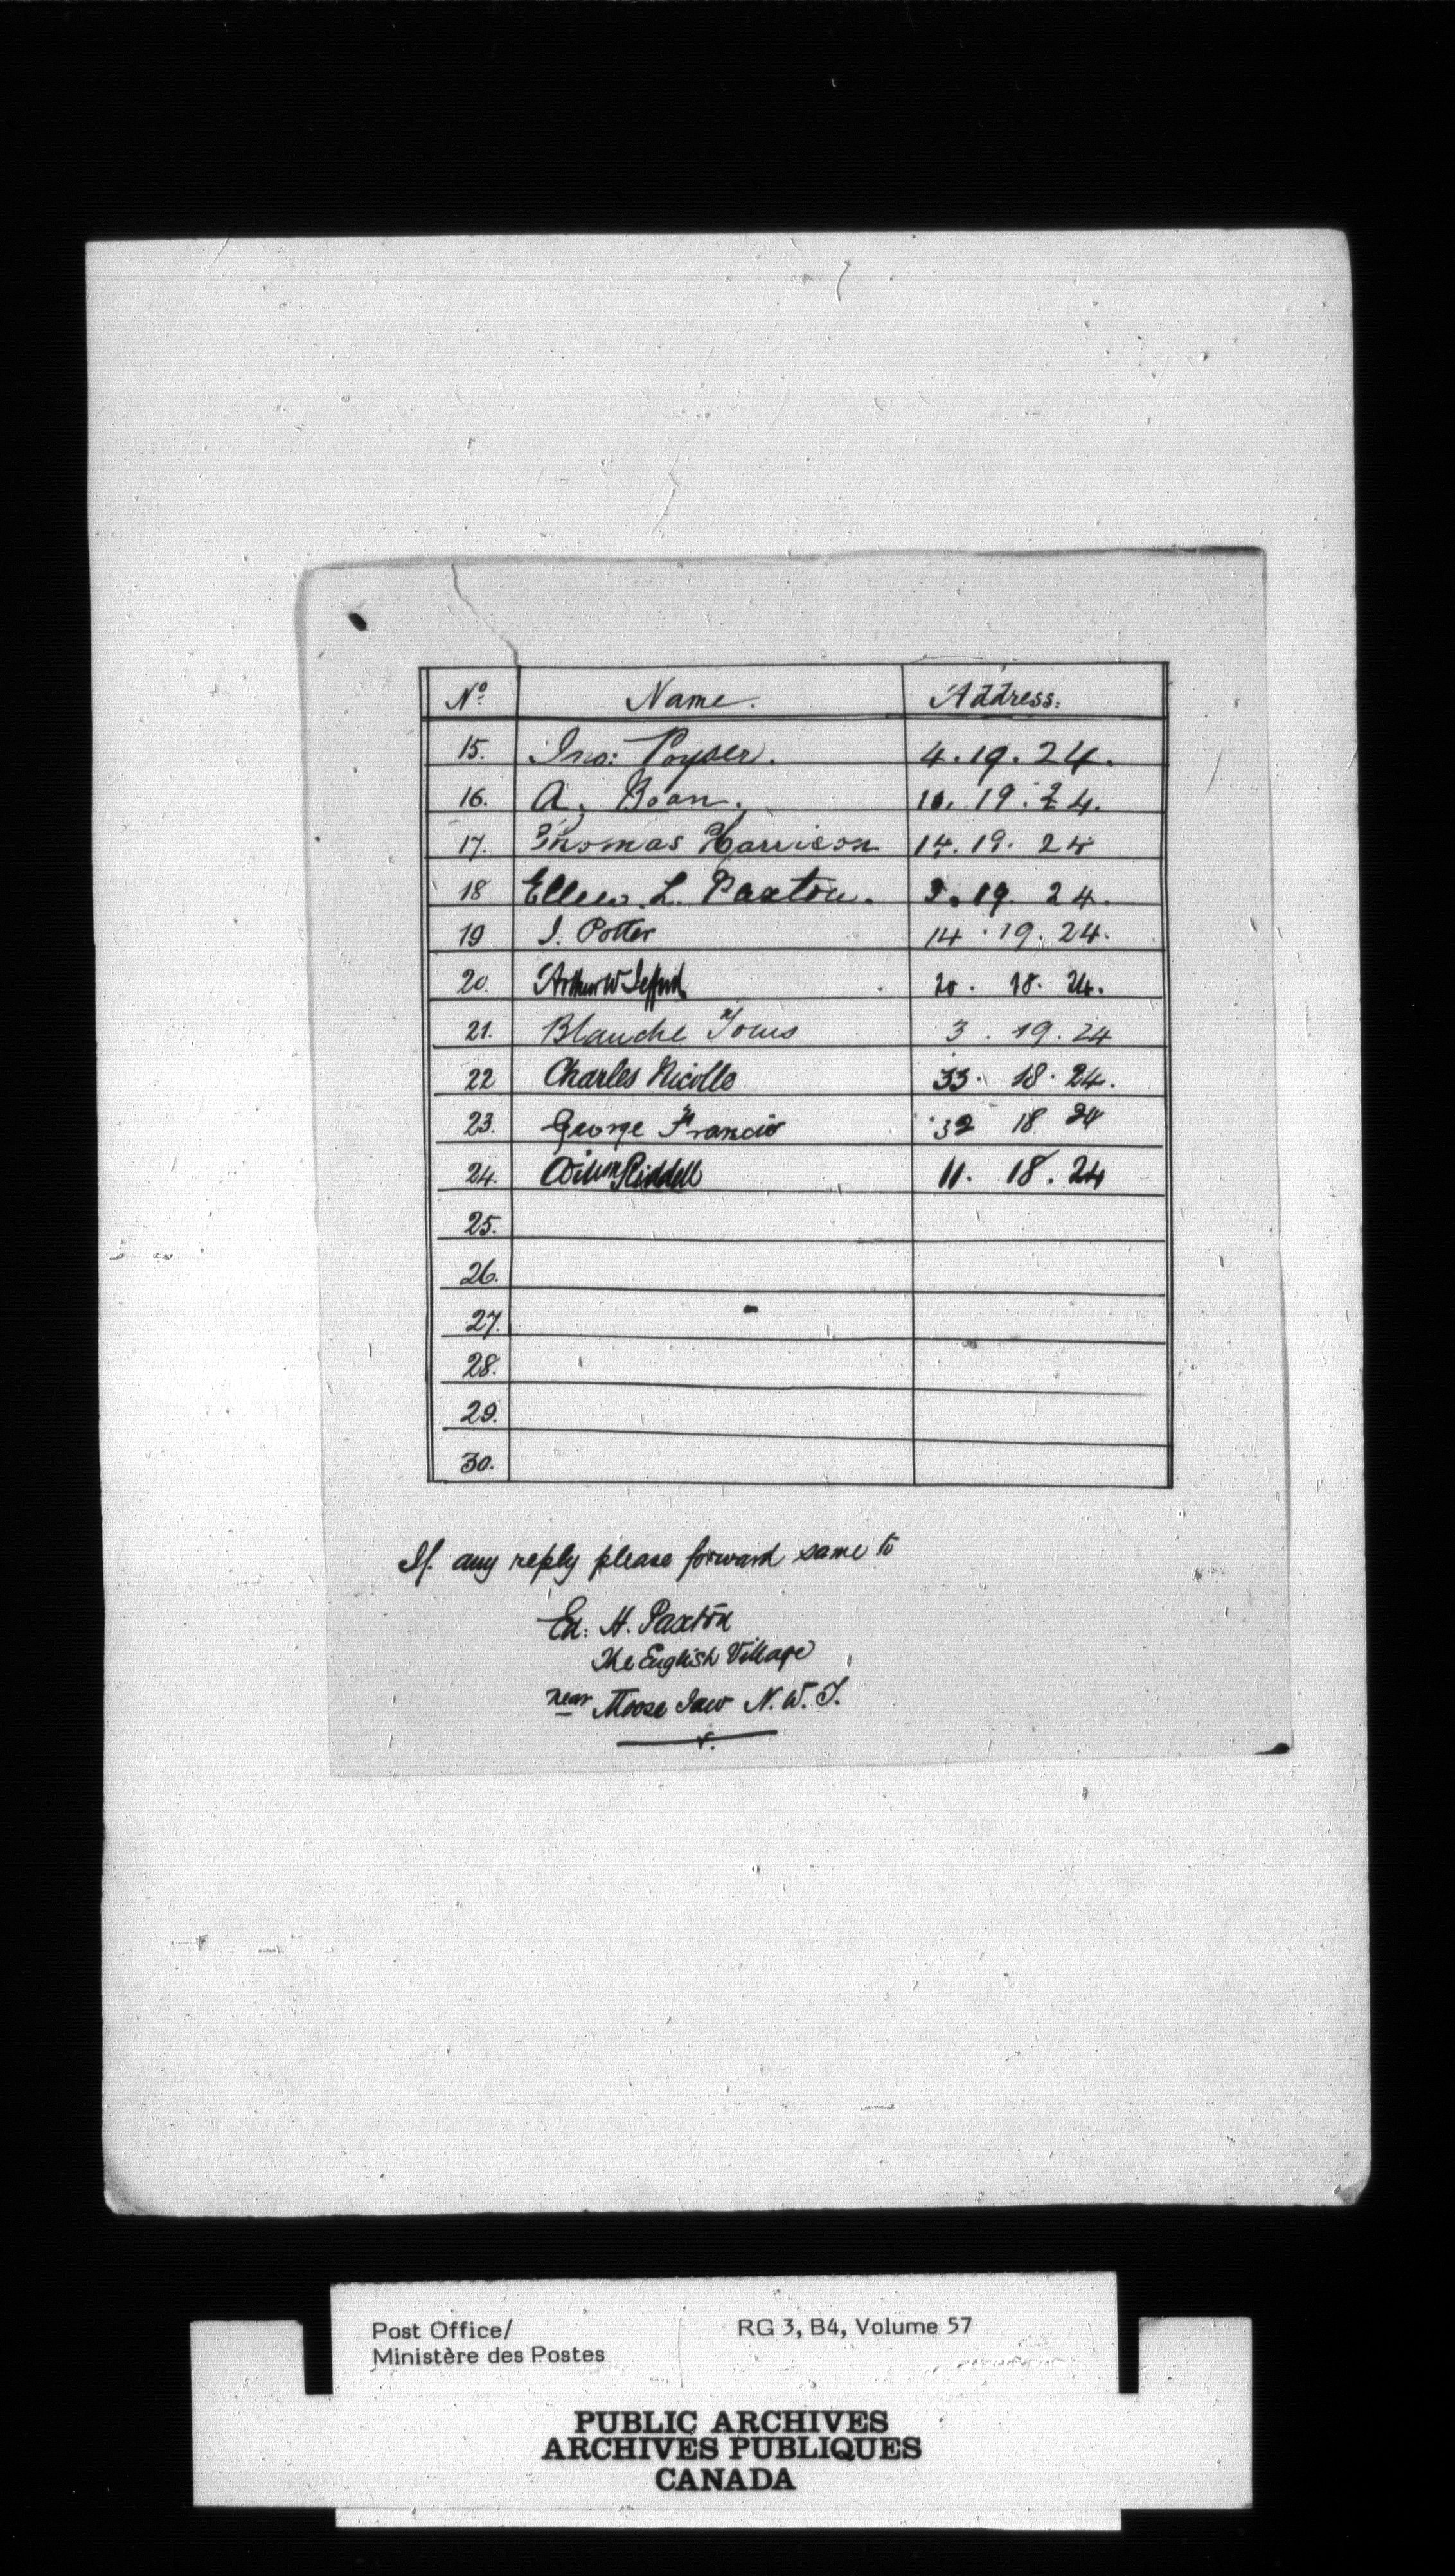 No. Name. Address:
15. Jno: Poyser. 4. 19. 24.
16. A. Boan. 10. 19. 24.
17. Thomas Harrison 14. 19. 24
18 Ellen. L. Paxton. 3. 19. 24.
19 J. Potter 14. 19. 24.
20. Arthur W 20. 18. 24.
21. Blanche 3. 19. 24
22 Charles Nicolle 33. 18. 24.
23. George Francis 32 18 24
24. Riddell 11. 18. 24
25.
26.
27.
28.
29.
30.
If any reply please forward same to
Ed: H. Paxton
The English Village
near Moose Jaw N. W. T.
Post Office/ RG 3, B4, Volume 57
Ministère des Postes
PUBLIC ARCHIVES
ARCHIVES PUBLIQUES
CANADA